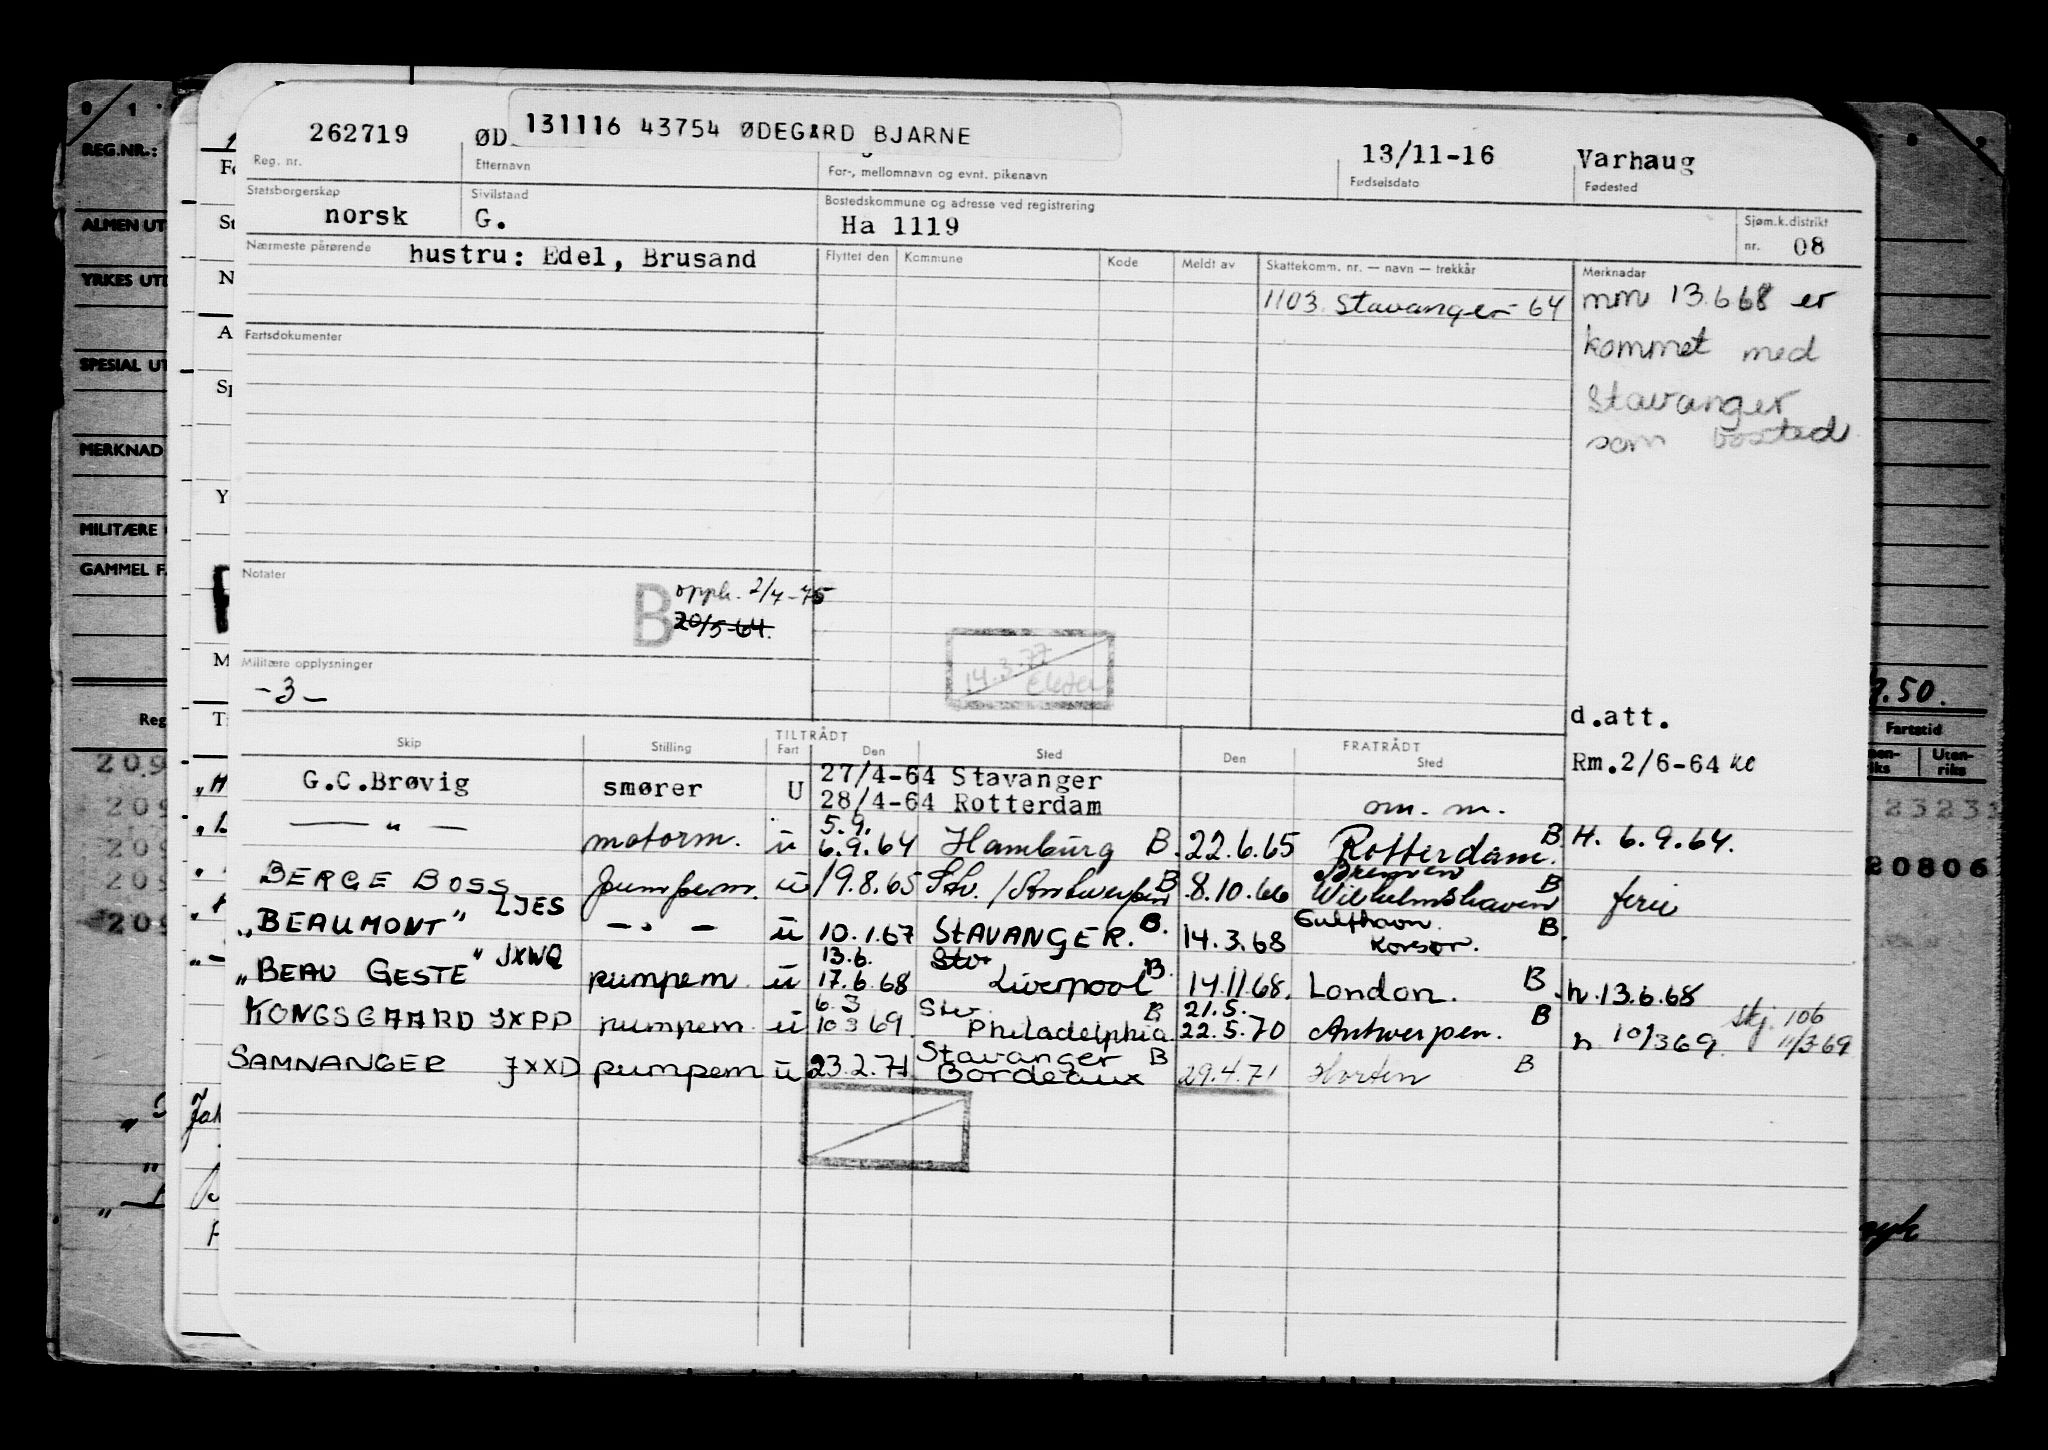 131116 43754 ØDEGARD BJARNE
262719 ØD
13/11-16 Varhaug
Reg. nr. Etternavn For-, mellomnavn og evnt. pikenavn Fødselsdato Fødested
Statsborgerskap Sivilstand Bostedskommune og adresse ved registrering Sjøm.k.distrikt
norsk G. Ha 1119 nr. 08
Nærmeste pårørende hustru: Edel, Brusand
Flyttet den Kommune Kode Meldt av Skattekomm. nr. — navn — trekkår Merknadar
1103 Stavanger - 64
mm 13.6.68 er
kommet med
Stavanger
som bosted
Fartsdokumenter
Notater
B opph. 2/4-75
20/5-64.
14.3.77
Militære opplysninger
-3-
d.att.
Skip Stilling TILTRÅDT Fart Den Sted FRATRÅDT Den Sted
Rm.2/6-64
G.C.Brøvig smører U 27/4-64 Stavanger
28/4-64 Rotterdam om. m.
— " — motorm. u 5.9. 6.9.64 Hamburg B. 22.6.65 Rotterdam. B H. 6.9.64.
BERGE BOSS LJES pumpem. u 19.8.65 Stv. / Antwerpen B 8.10.66 Bremen Wilhelmshaven B ferie
„BEAUMONT" - " - u 10.1.67 STAVANGER. B. 14.3.68 Gulfhavn. Korsør. B.
„BEAU GESTE" JXWQ pumpem u 13.6. 17.6.68 Stv Liverpool B. 14.11.68. London. B. h. 13.6.68
KONGSGAARD JXPD pumpem u 6.3 10.3.69. Stv. Philadelphia B 21.5. 22.5.70 Antwerpen. B h 10/3 69. skj. 106 11/3 69
SAMNANGER JXXD pumpem u 23.2.71 Stavanger Bordeaux B 29.4.71 Horten B
REG.NR.:
ALMEN UT
YRKES UTD
SPESIAL UT
MERKNAD
MILITÆRE
GAMMEL F.
Reg
7.50.
Fartstid
Uten-
riks
23231
20806